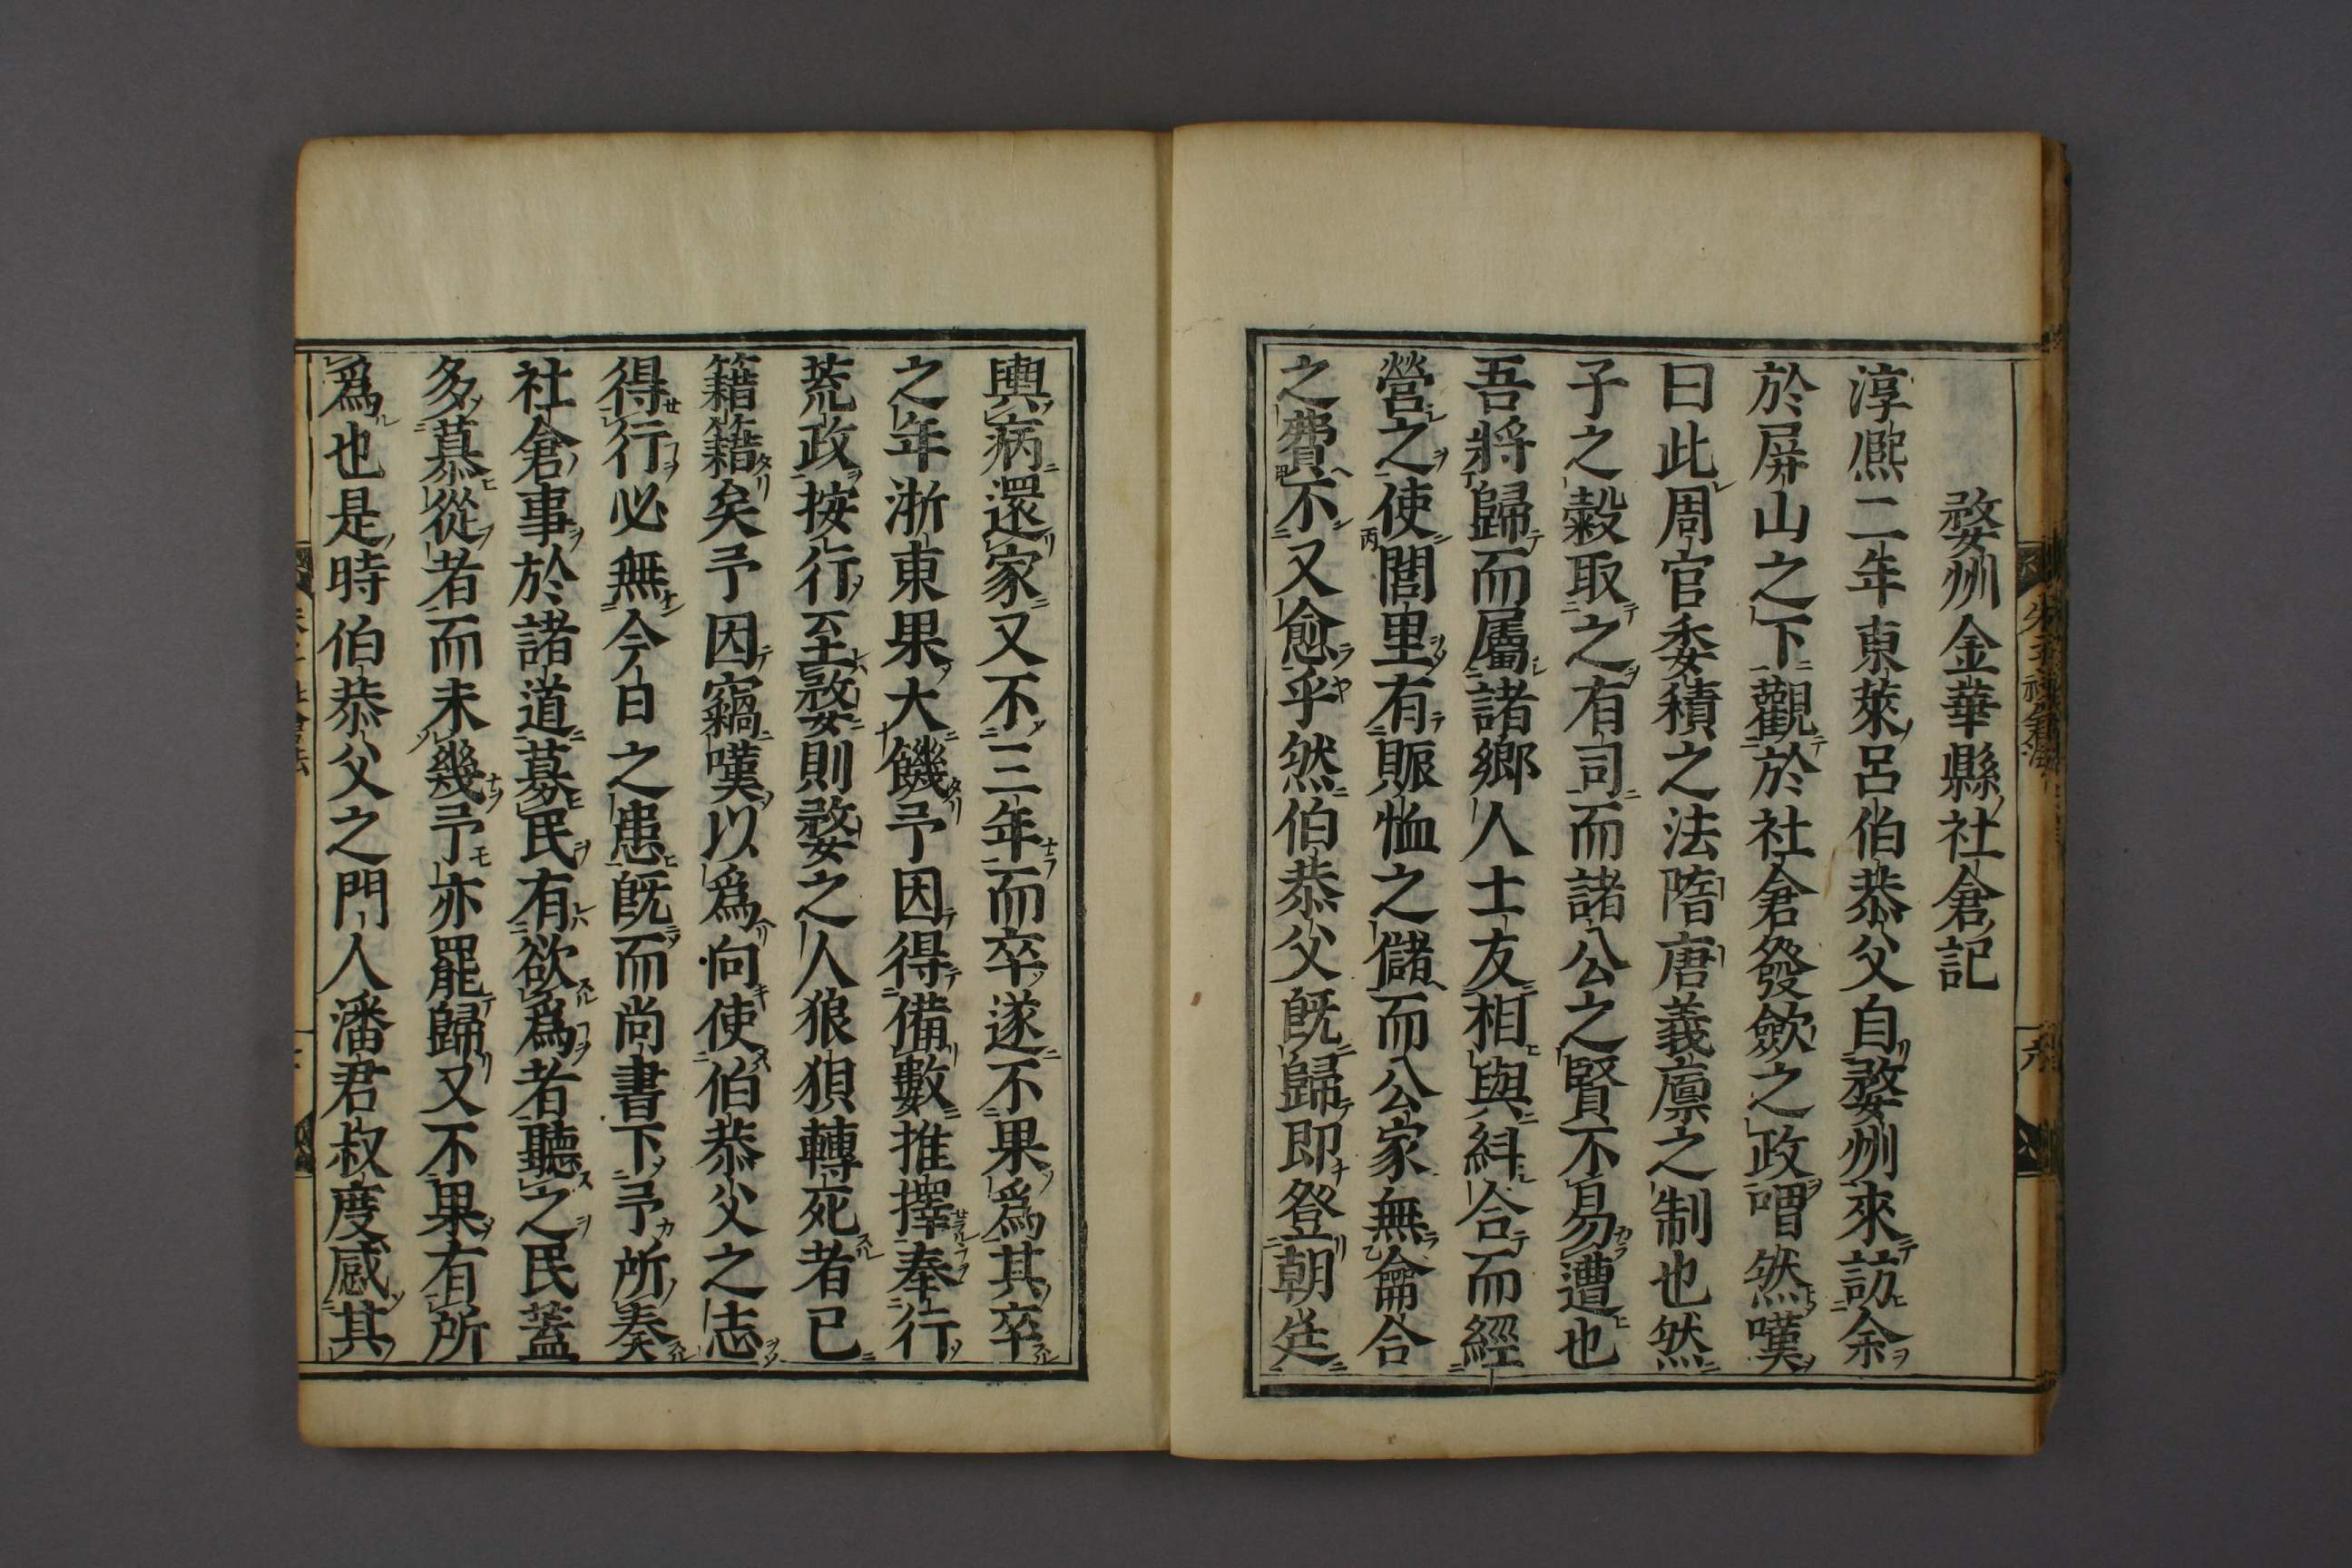 婺州金華縣社倉記
淳熈二年東萊呂伯恭父自婺州來訪余
於屏山之下觀於社倉發歛之政喟然嘆
曰此周官委積之法隋唐義廪之制也然
子之穀取之有司而諸公之賢不易遭也
吾將歸而屬諸鄉人士友相與糾合而經
營之使閭里有賑恤之儲而公家無龠合
之費不又愈乎然伯恭父既歸即登朝廷
輿病還家又不三年而卒遂不果爲其卒
之年浙東果大饑予因得備數推擇奉行
荒政按行至婺則婺之人狼狽轉死者已
籍籍矣予因竊嘆以爲向使伯恭父之志
得行必無今日之患既而尚書下予所奏
社倉事於諸道募民有欲爲者聽之民蓋
多慕從者而未幾予亦罷歸又不果有所
爲也是時伯恭父之門人潘君叔度感其